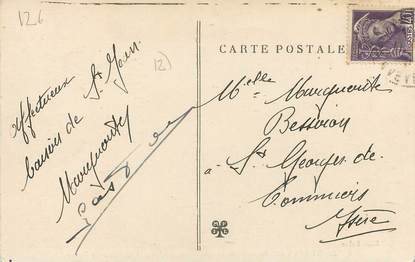 126
12)
Affectueux
baisers de St Jean
Marguerite
CARTE POSTALE
Melle Marguerite
Bessiron
St Georges de
a Commiers
Isère